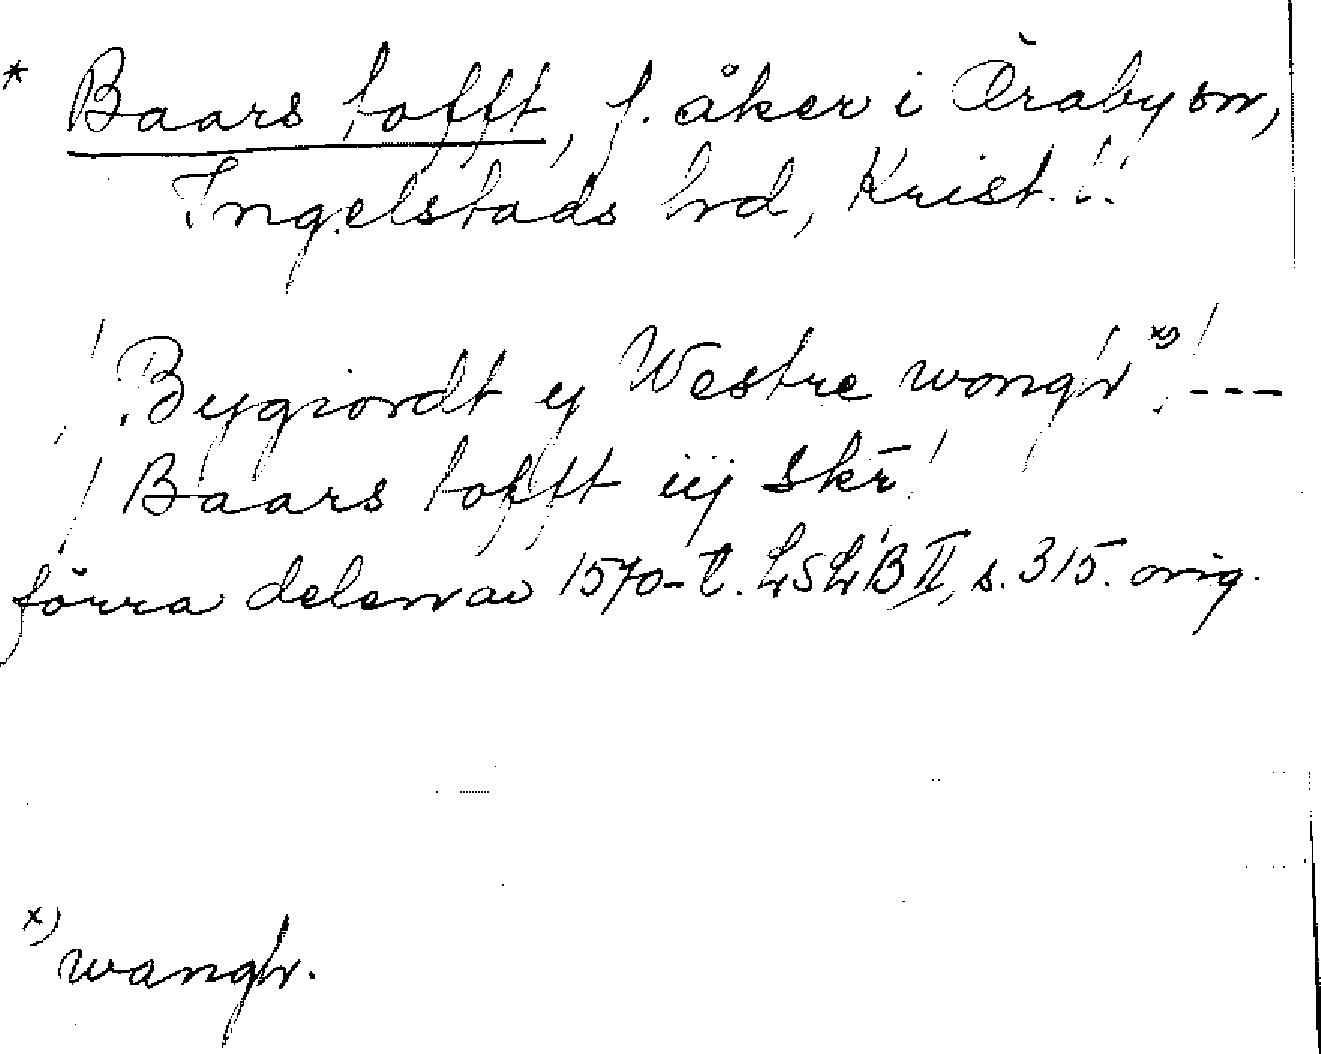 * Baars tofft, f. åker i Öraby sn,
Ingelstads hd, Krist. l.
/ Bygiordt y Westre wongh x) / ---
/ Baars tofft iij skr̄ /
förra delen av 1570-t. LSLB II, s. 315. orig.
x) wangh.